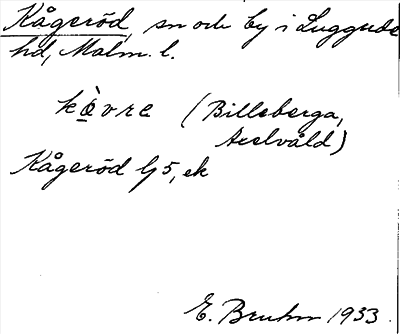 Kågeröd, sn och by i Luggude
hd, Malm. l.
kœ̀vre (Billeberga,
Axelvåld)
Kågeröd G 5, ek
E. Bruhn 1933.